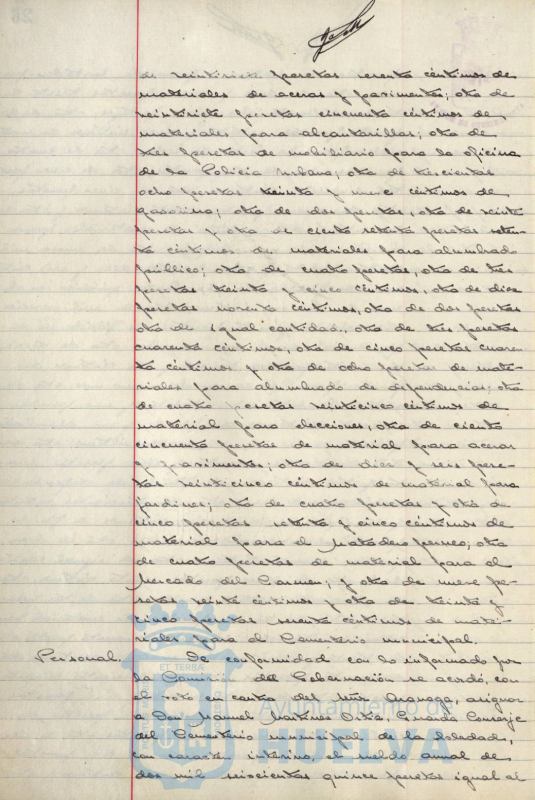 de veintisiete pesetas sesenta céntimos de
materiales de aceras y pavimentos; otra de
veintisiete pesetas cincuenta céntimos de
materiales para alcantarillas; otra de
tres pesetas de mobiliario para la oficina
de la Policía urbana; otra de trescientas
ocho pesetas treinta y nueve céntimos de
gasolina; otra de dos pesetas, otra de veinte
pesetas y otra de ciento setenta pesetas
céntimos de materiales para alumbrado
público; otra de cuatro pesetas, otra de tres
pesetas treinta y cinco céntimos, otra de diez
pesetas noventa céntimos, otra de dos pesetas
otra de igual cantidad, otra de tres pesetas
cuarenta céntimos, otra de cinco pesetas cuaren-
ta céntimos y otra de ocho pesetas de mate-
riales para alumbrado de dependencias; otra
de cuatro pesetas veinticinco céntimos de
material para elecciones, otra de ciento
cincuenta pesetas de material para aceras
y pavimentos; otra de diez y seis pese-
tas veinticinco céntimos de material para
jardines; otra de cuatro pesetas y otra de
cinco pesetas setenta y cinco céntimos de
material para el Matadero ; otra
de cuatro pesetas de material para el
Mercado del Carmen; y otra de nueve pe-
setas veinte céntimos y otra de treinta y
cinco pesetas sesenta céntimos de mate-
riales para el Cementerio municipal.
Personal. De conformidad con lo informado por
la Comisión del Gobernación se acordó, con
el voto en contra del Señor , asignar
a Don Manuel Martinez Ortiz, Guarda Conserje
del Cementerio municipal de la Soledad,
con carácter interino, el sueldo anual de
dos mil seiscientas quince pesetas igual al
ET TERRÆ
Ayuntamiento de
HUELVA